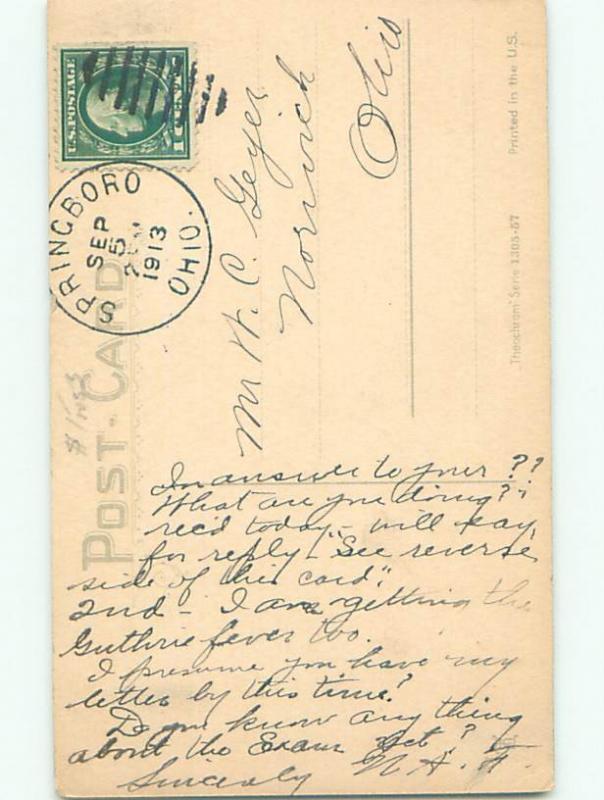 U.S. POSTAGE
1 CENT 1
SPRINGBORO
SEP
5
1913
OHIO.
POST CARD
Mr W. C. Geyer
Norwich
Ohio
Printed in the U.S.
"Theochrom" Serie 1305-57
In answer to your ??
What are you doing??
rec'd today - will say,
for reply - "See reverse
side of this card".
2nd - I am getting the
Guthrie fever too.
I presume you have my
letter by this time?
Do you know any thing
about the Exam yet?
Sincerely N. A. F.